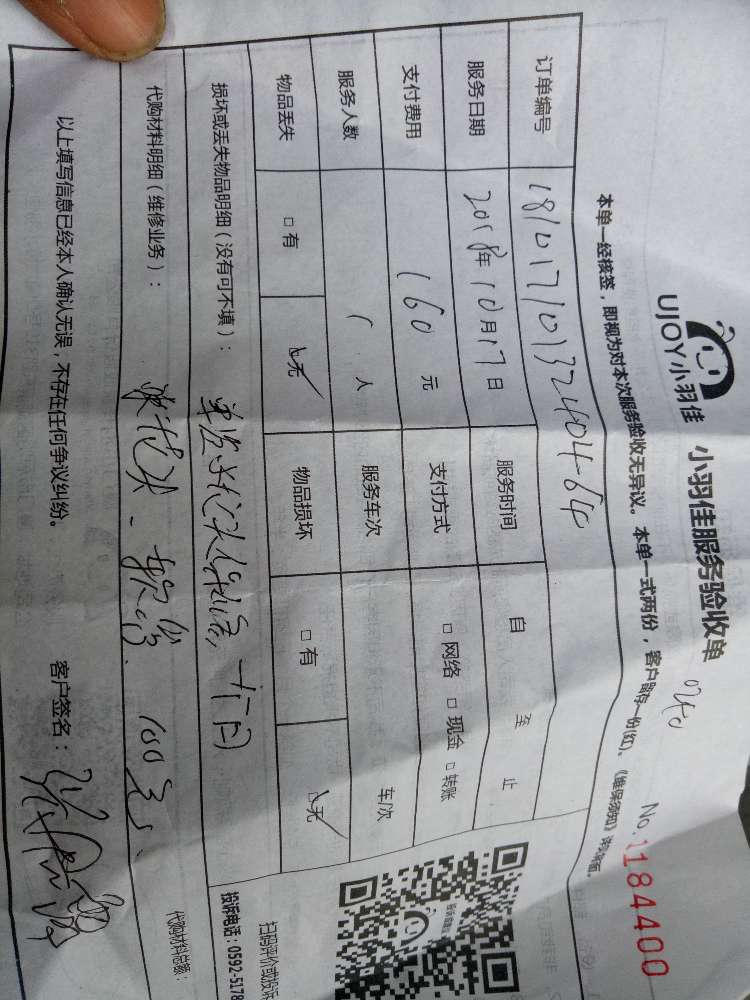 UJOY小羽佳
小羽佳服务验收单
No.1184400
本单一经核签，即视为对本次服务验收无异议。本单一式两份，客户留存一份(红)。《维保须知》详见背面。
订单编号 18101710132404-64
服务日期 2018年10月17日 服务时间 自 至 止
支付费用 160元 支付方式 □ 网络 □ 现金 □ 转账
服务人数 1人 服务车次 车/次
物品丢失 □ 有 □ 无 物品损坏 □ 有 □ 无
损坏或丢失物品明细（没有可不填）：
代购材料明细（维修业务）： 100元
代购材料总额：
以上填写信息已经本人确认无误，不存在任何争议纠纷。 客户签名：
扫码评价或投诉
投诉电话：0592-5178